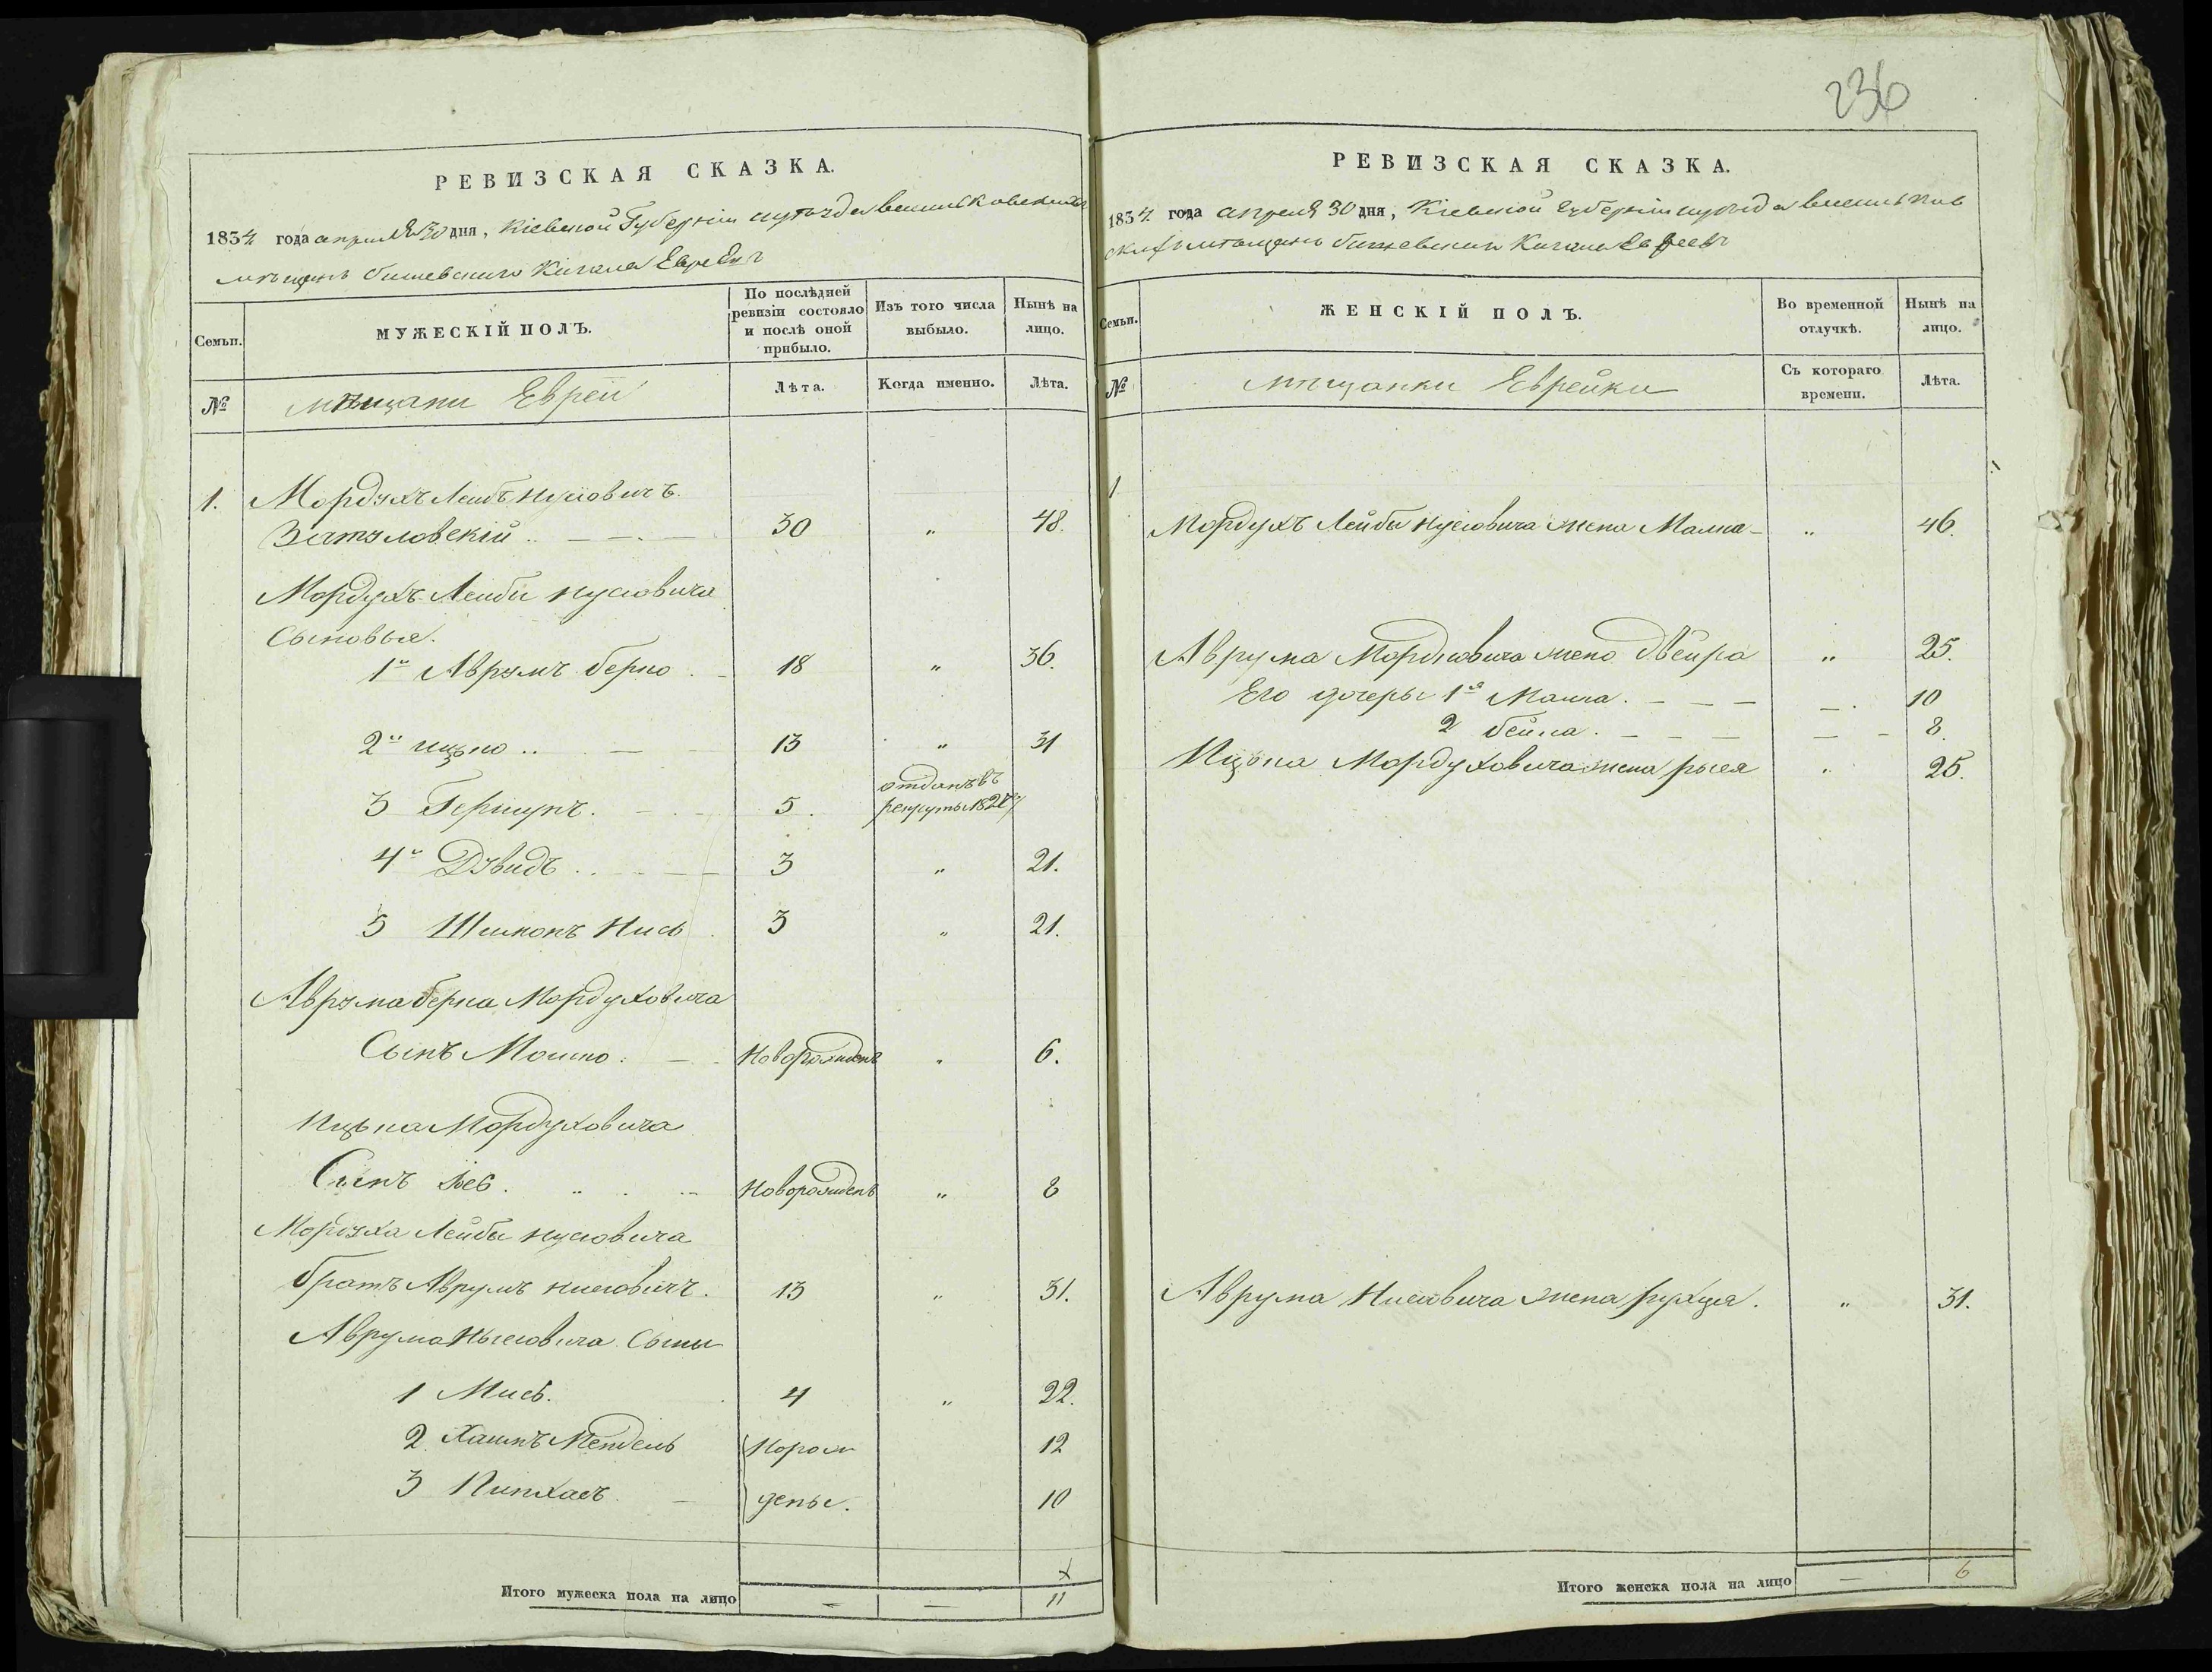 236
РЕВИЗСКАЯ СКАЗКА.
1834 года апреля 30 дня, Кіевской Губерніи
мѣщанъ Кагала Евреевъ
Семьи.
МУЖЕСКІЙ ПОЛЪ.
По послѣдней ревизіи состояло и послѣ оной прибыло.
Изъ того числа выбыло.
Нынѣ на лицо.
№
мѣщани Евреи
Лѣта.
Когда именно.
Лѣта.
1. Мордухъ Лейбъ Нусіовичъ
Затуловскій 30 „ 48.
Мордухъ Лейбы Нусіовича
Сыновья.
1й Аврумъ Берко 18 „ 36.
2й Ицько 13 „ 31
3 Гершунъ. 5. отданъ въ рекруты 1827
4й Дувидъ 3 „ 21.
5 Шимонъ Нисъ 3 „ 21.
Аврума Берка Мордуховича
Сынъ Мошко. Новорожденъ „ 6.
Ицька Мордуховича
Сынъ Новорожденъ „ 8
Мордуха Лейбы Нусіовича
братъ Аврумъ Нисіовичъ. 13 „ 31.
Аврума Нысіовича Сыны
1 4 „ 22.
2. Хаимъ Мендель Норож 12
3 Пинхасъ. дены. 10
Итого мужеска пола на лицо — — 11
РЕВИЗСКАЯ СКАЗКА.
1834 года апреля 30 дня, Кіевской Губерніи
мѣщанъ Кагала Евреевъ
Семьи.
ЖЕНСКІЙ ПОЛЪ.
Во временной отлучкѣ.
Нынѣ на лицо.
№
мѣщанки Еврейки
Съ котораго времени.
Лѣта.
1
Мордухъ Лейбы Нусіовича жена Малка „ 46.
Аврума Мордковича жена Двейра „ 25.
Его дочеры 1я — 10
2 Бейла. — 8.
Ицька Мордуховича жена Рыся „ 25.
Аврума Нисіовича жена Рухця. „ 31.
Итого женска пола на лицо — 6